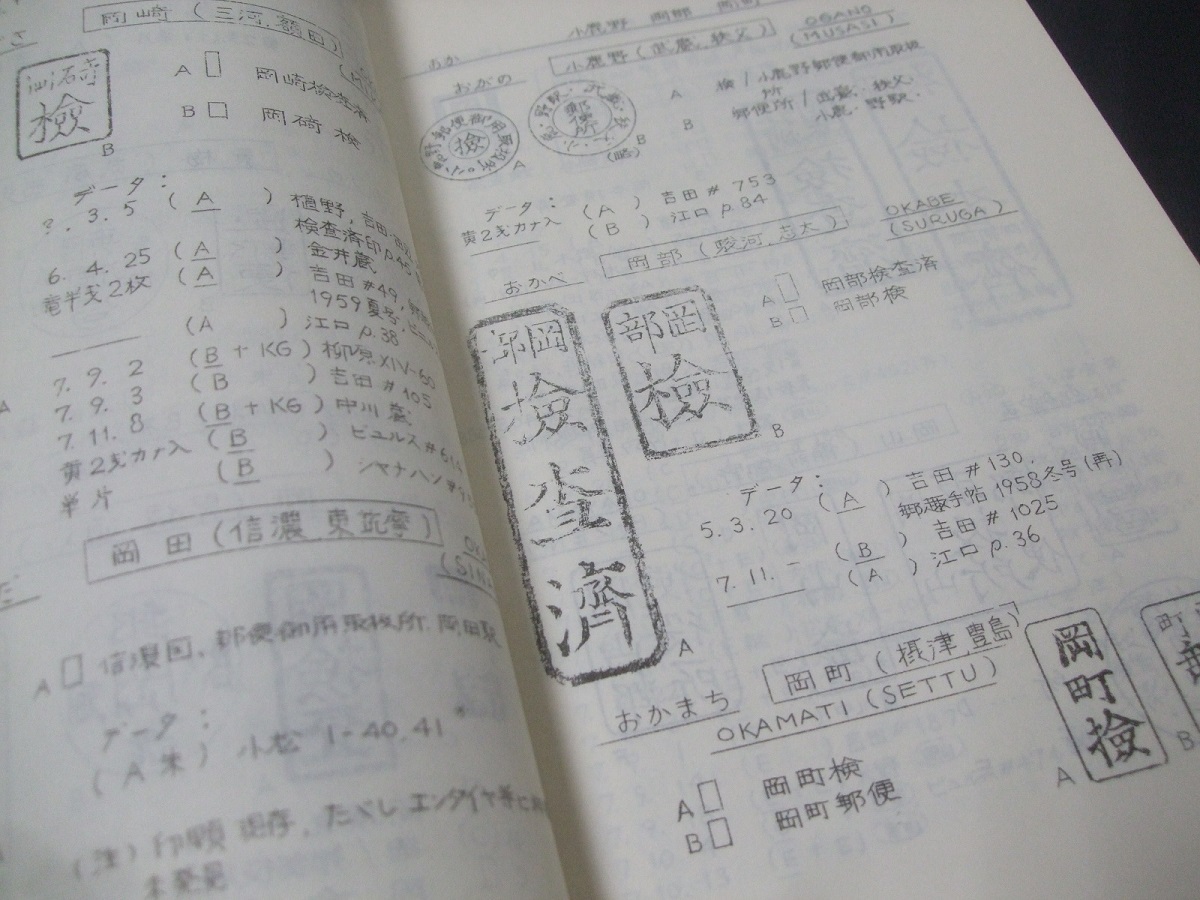 岡崎 (三河、額田)
岡崎
檢
B
A 岡崎検査済
B 岡碕 検
データ:
?. 3. 5 (A)
検査済印 p.45
6. 4. 25 (A) 金井蔵
竜半戋2枚 (A) 吉田 #49,
1959夏号,
(A) 江口 p.38
7. 9. 2 (B + KG) 柳原 XIV-60
7. 9. 3 (B) 吉田 #105
7. 11. 8 (B + KG) 中川 蔵
黄2戋カナ入 (B)
半片 (B)
岡田 (信濃、東筑摩)
A 信濃国、郵便御用取扱所 岡田駅
データ:
(A朱) 小松 1-40,41
(注) 印顆 現存、ただし エンタイヤ等
未発見
おか
小鹿野 岡部 岡町
おがの
小鹿野 (武蔵、秩父)
OGANO
(MUSASI)
檢
A
郵便所
B
(略)
A 検 / 小鹿野郵便御用取扱所
B 郵便所 / 武蔵・秩父・
小鹿・野駅・
データ:
黄2戋カナ入 (A) 吉田 # 753
(B) 江口 p.84
おかべ
岡部 (駿河、志太)
OKABE
(SURUGA)
A 岡部検査済
B 岡部検
岡部
檢査濟
A
岡部
檢
B
データ:
5. 3. 20 (A) 吉田 #130,
郵趣手帖 1958冬号(再)
(B) 吉田 # 1025
7. 11. - (A) 江口 p.36
おかまち
岡町 (摂津、豊島)
OKAMATI (SETTU)
A 岡町検
B 岡町郵便
岡町檢
A
町
B